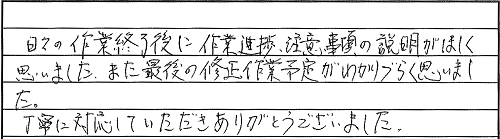 日々の作業終了後に作業進捗、注意事項の説明がほしく
思いました。また最後の修正作業予定がわかりづらく思いまし
た。
丁寧に対応していただきありがとうございました。